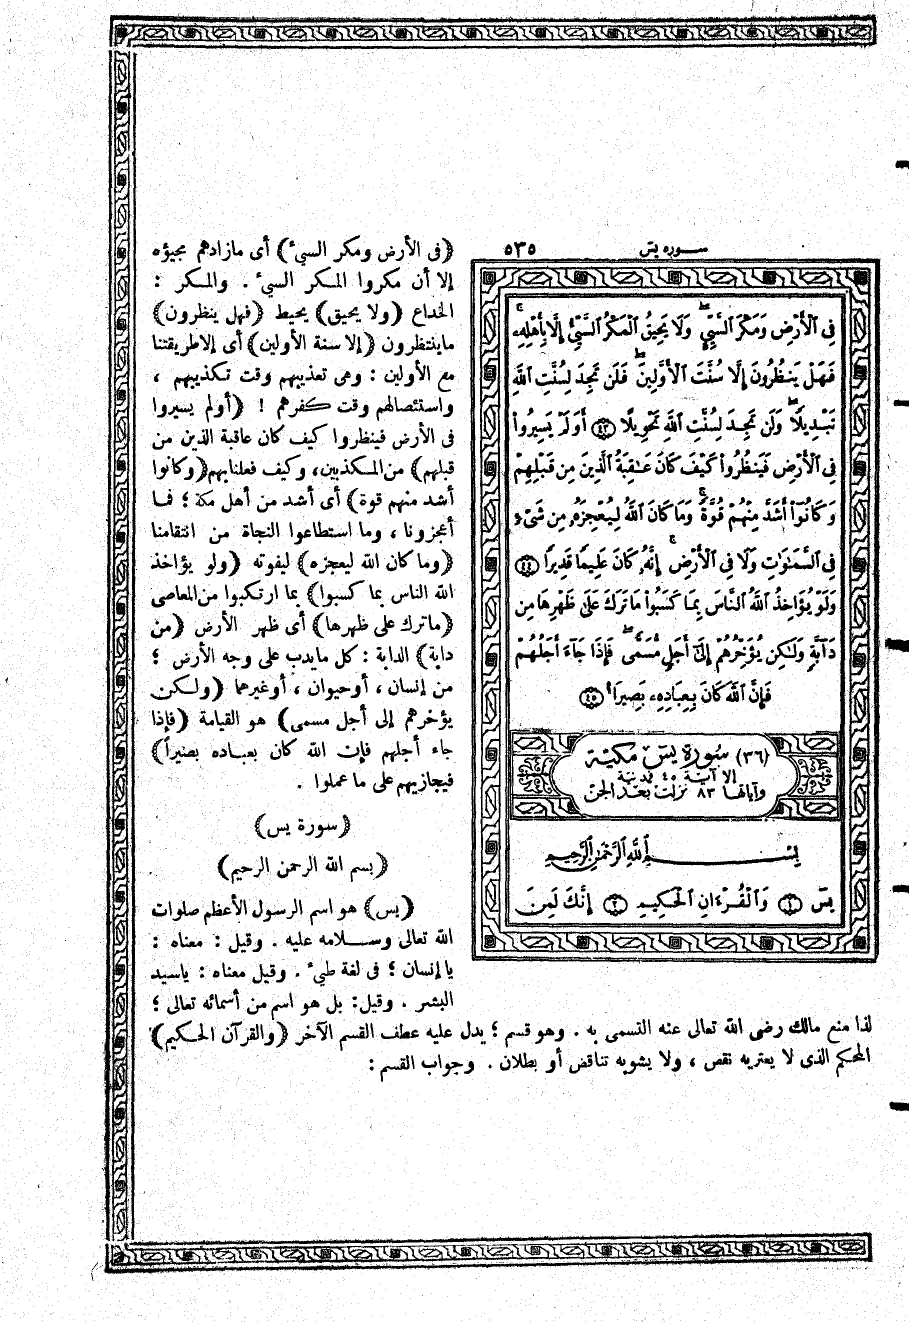 سورة يس ٥٣٥
فِى ٱلْأَرْضِ وَمَكْرَ ٱلسَّيِّئِ ۚ وَلَا يَحِيقُ ٱلْمَكْرُ ٱلسَّيِّئُ إِلَّا بِأَهْلِهِۦ ۚ
فَهَلْ يَنظُرُونَ إِلَّا سُنَّتَ ٱلْأَوَّلِينَ ۚ فَلَن تَجِدَ لِسُنَّتِ ٱللَّهِ
تَبْدِيلًا ۖ وَلَن تَجِدَ لِسُنَّتِ ٱللَّهِ تَحْوِيلًا ٤٣ أَوَلَمْ يَسِيرُوا۟
فِى ٱلْأَرْضِ فَيَنظُرُوا۟ كَيْفَ كَانَ عَـٰقِبَةُ ٱلَّذِينَ مِن قَبْلِهِمْ
وَكَانُوٓا۟ أَشَدَّ مِنْهُمْ قُوَّةً ۚ وَمَا كَانَ ٱللَّهُ لِيُعْجِزَهُۥ مِن شَىْءٍ
فِى ٱلسَّمَـٰوَٰتِ وَلَا فِى ٱلْأَرْضِ ۚ إِنَّهُۥ كَانَ عَلِيمًا قَدِيرًا ٤٤
وَلَوْ يُؤَاخِذُ ٱللَّهُ ٱلنَّاسَ بِمَا كَسَبُوا۟ مَا تَرَكَ عَلَىٰ ظَهْرِهَا مِن
دَآبَّةٍ وَلَـٰكِن يُؤَخِّرُهُمْ إِلَىٰٓ أَجَلٍ مُّسَمًّى ۖ فَإِذَا جَآءَ أَجَلُهُمْ
فَإِنَّ ٱللَّهَ كَانَ بِعِبَادِهِۦ بَصِيرًۢا ٤٥
(٣٦) سُورَةِ يسٓ مَكيّة
إلا آية ٤٥ فمدنية
وآياتها ٨٣ نزلت بعد الجن
بِسْمِ ٱللَّهِ ٱلرَّحْمَـٰنِ ٱلرَّحِيمِ
يسٓ ١ وَٱلْقُرْءَانِ ٱلْحَكِيمِ ٢ إِنَّكَ لَمِنَ
(فى الأرض ومكر السيىء) أى مازادهم مجيؤه
إلا أن مكروا المكر السيىء . والمكر :
الخداع (ولا يحيق) يحيط (فهل ينظرون)
ماينتظرون (إلا سنة الأولين) أى إلاطريقتنا
مع الأولين : وهى تعذيبهم وقت تكذيبهم ،
واستئصالهم وقت كفرهم ! (أولم يسيروا
فى الأرض فينظروا كيف كان عاقبة الذين من
قبلهم) من المكذبين، وكيف فعلنابهم(وكانوا
أشد منهم قوة) أى أشد من أهل مكة ؛ فما
أعجزونا ، وما استطاعوا النجاة من انتقامنا
(وما كان الله ليعجزه) ليفوته (ولو يؤاخذ
الله الناس بما كسبوا) بما ارتكبوا من المعاصى
(ماترك على ظهرها) أى ظهر الأرض (من
دابة) الدابة : كل مايدب على وجه الأرض ؛
من إنسان ، أوحيوان ، أوغيرهما (ولكن
يؤخرهم إلى أجل مسمى) هو القيامة (فإذا
جاء أجلهم فإن الله كان بعباده بصيراً)
فيجازيهم على ما عملوا .
(سورة يس)
(بسم الله الرحمن الرحيم)
(يس) هو اسم الرسول الأعظم صلوات
الله تعالى وسلامه عليه . وقيل : معناه :
يا إنسان ؛ فى لغة طيىء . وقيل معناه : ياسيد
البشر . وقيل: بل هو اسم من أسمائه تعالى ؛
لذا منع مالك رضى الله تعالى عنه التسمى به . وهو قسم ؛ يدل عليه عطف القسم الآخر (والقرآن الحكيم)
المحكم الذى لا يعتريه نقص ، ولا يشوبه تناقض أو بطلان . وجواب القسم :